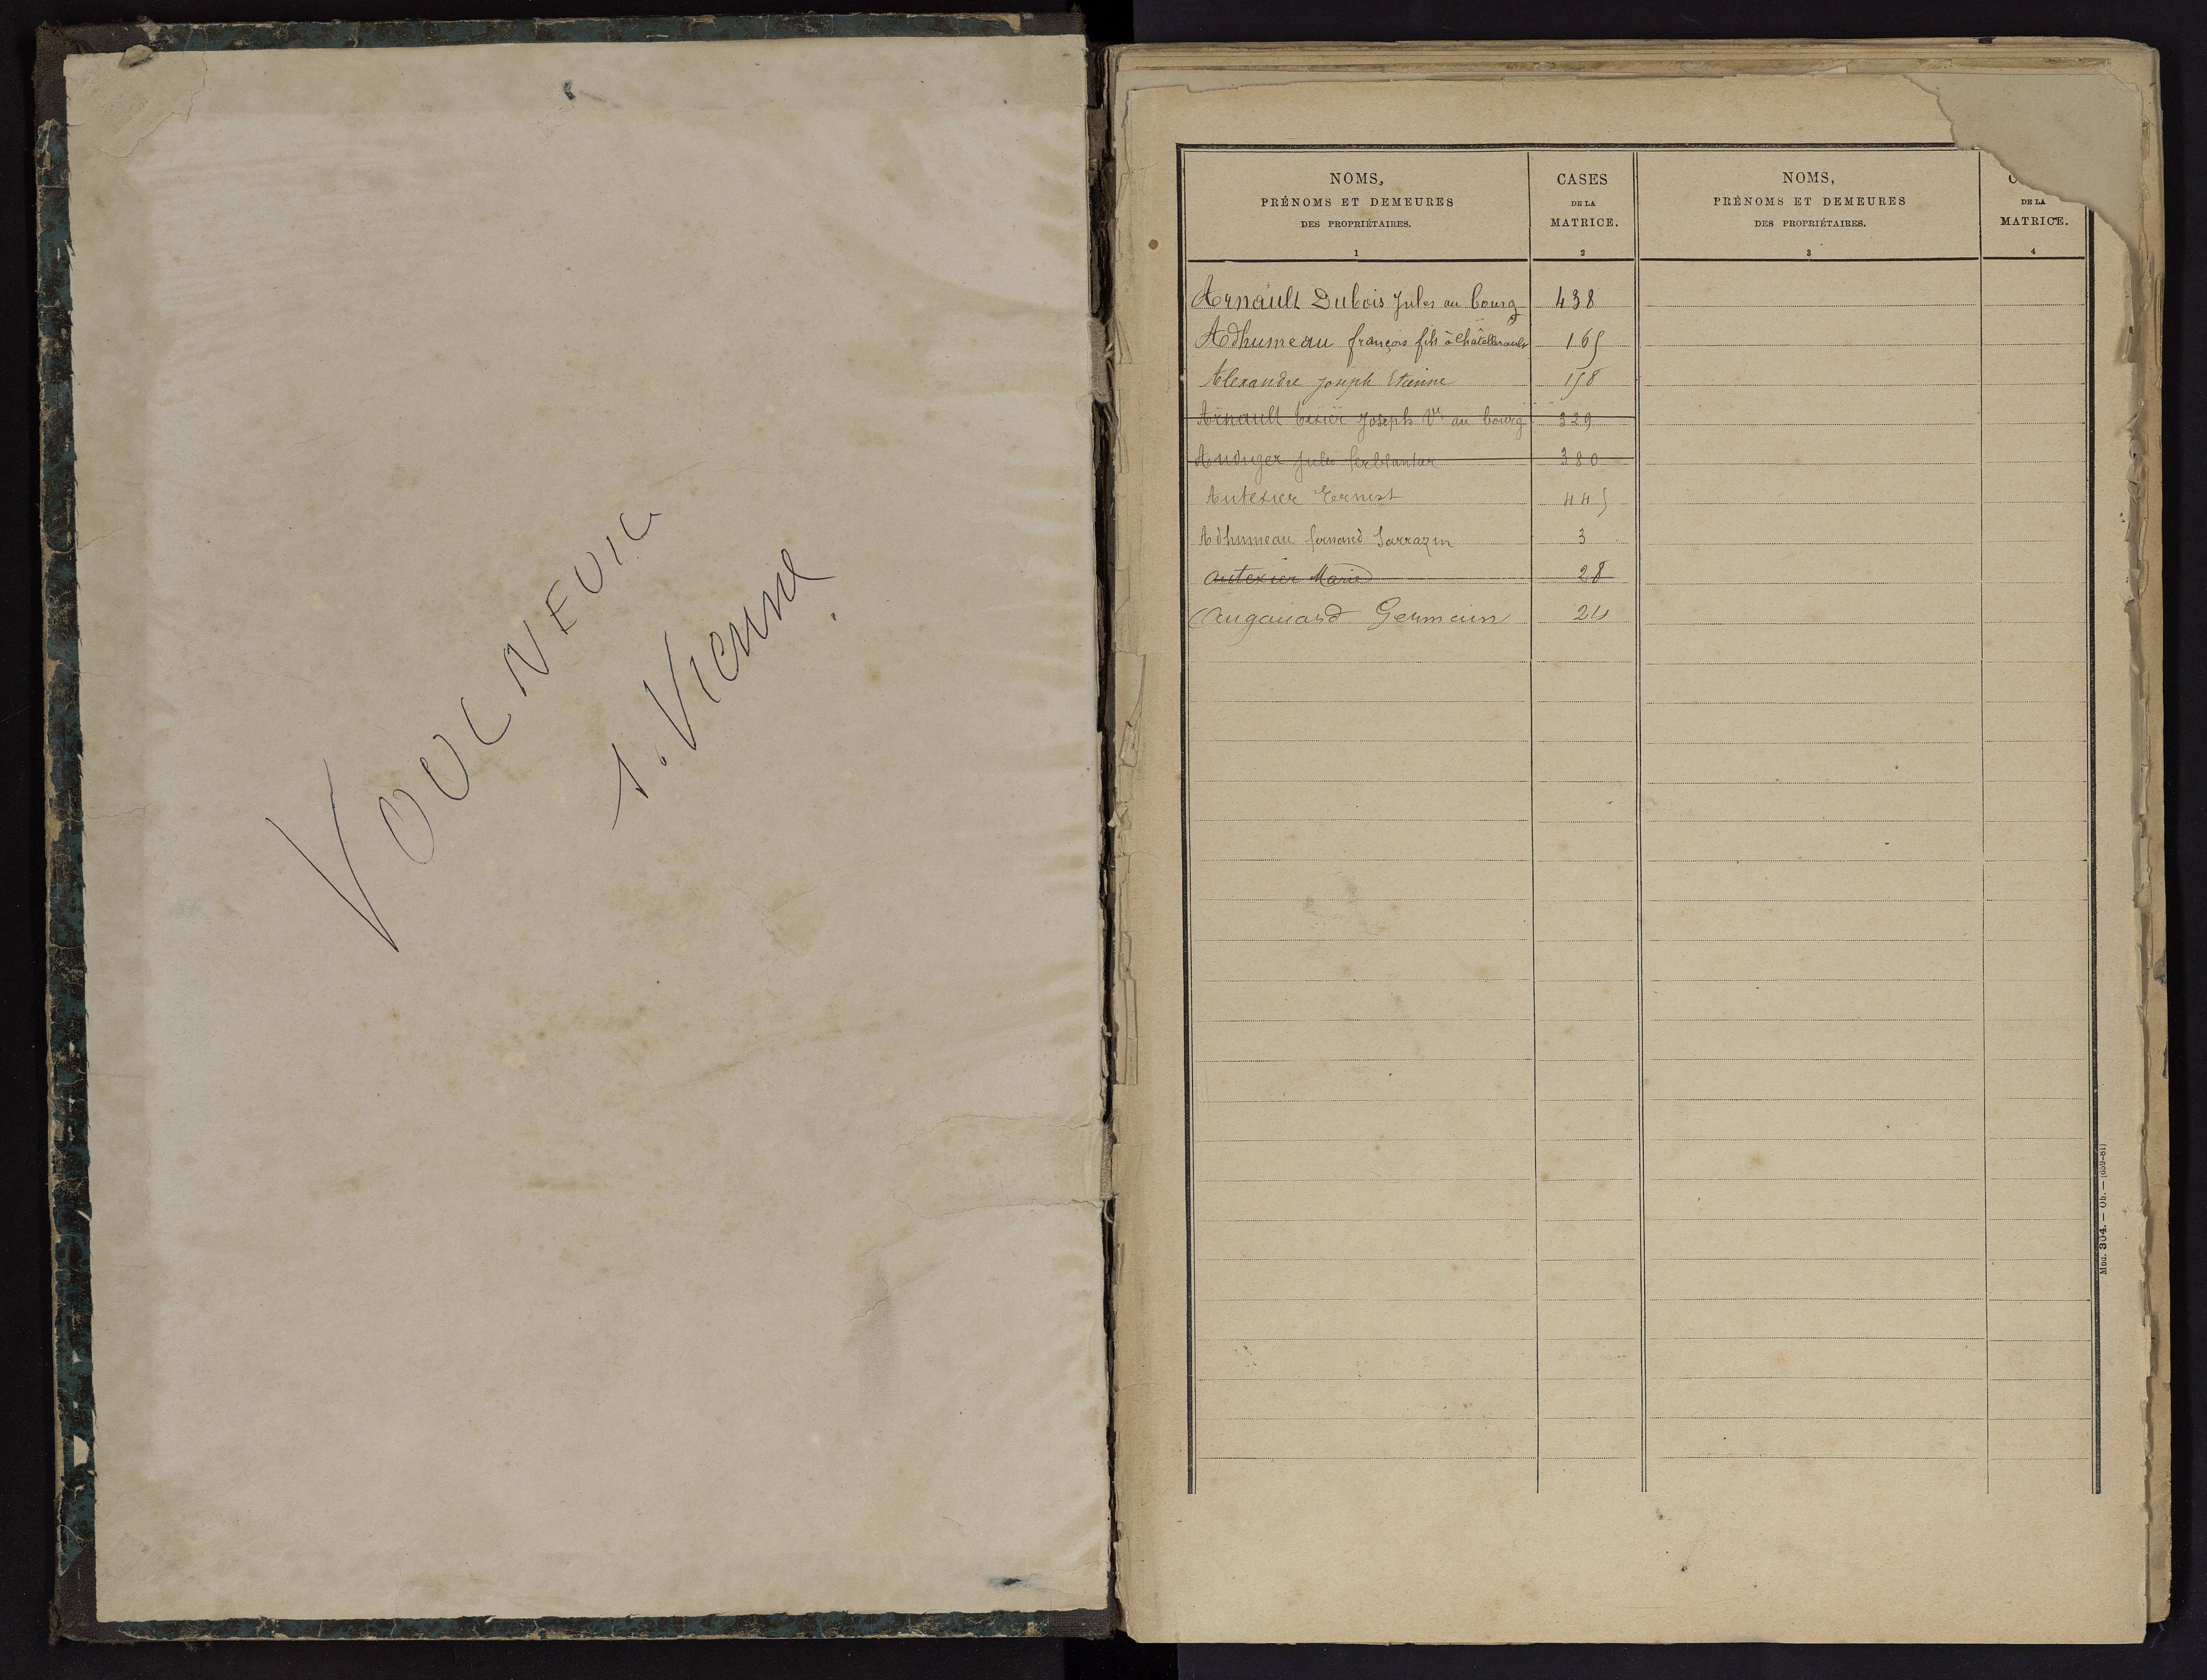 VOUL NEUIL
s. Vienne
NOMS,
PRÉNOMS ET DEMEURES
DES PROPRIÉTAIRES.
1
CASES
DE LA
MATRICE.
2
NOMS,
PRÉNOMS ET DEMEURES
DES PROPRIÉTAIRES.
3
DE LA
MATRICE.
4
Arnault Dubois Jules au bourg 438
Adhumeau françois fils à Châtellerault 165
Alexandre Joseph Etienne 158
Arnault texier Joseph Ve au bourg 329
Audiger Jules ferblantier 380
Autexier Ernest 445
Adhumeau fernand Sarrazin 3
Autexier Marie 28
Auganard Germain 24
Mod. 304. — Ob. — [659-81]